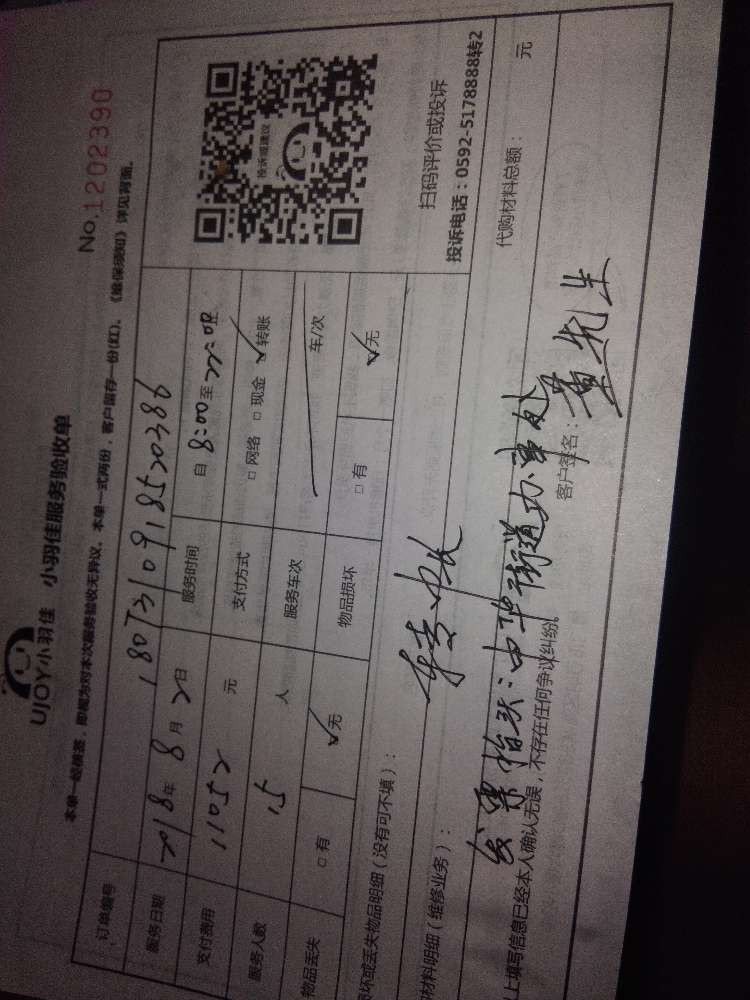 UJOY小羽佳 小羽佳服务验收单
No.1202390
本单一经横签，即视为对本次服务验收无异议。本单一式两份，客户留存一份(红)。《维保须知》详见背面。
订单编号 1807310918520386
服务日期 2018年8月2日 服务时间 自8:00至22:00
支付费用 11052元 支付方式 □网络 □现金 ✓转账
服务人数 51人 服务车次 车/次
物品丢失 □有 ✓无 物品损坏 □有 ✓无
投诉或建议
扫码评价或投诉
投诉电话：0592-5178888转2
损坏或丢失物品明细（没有可不填）：
材料明细（维修业务）： 代购材料总额： 元
发票抬头：中华街道办事处
上填写信息已经本人确认无误，不存在任何争议纠纷。 客户签名：董先生